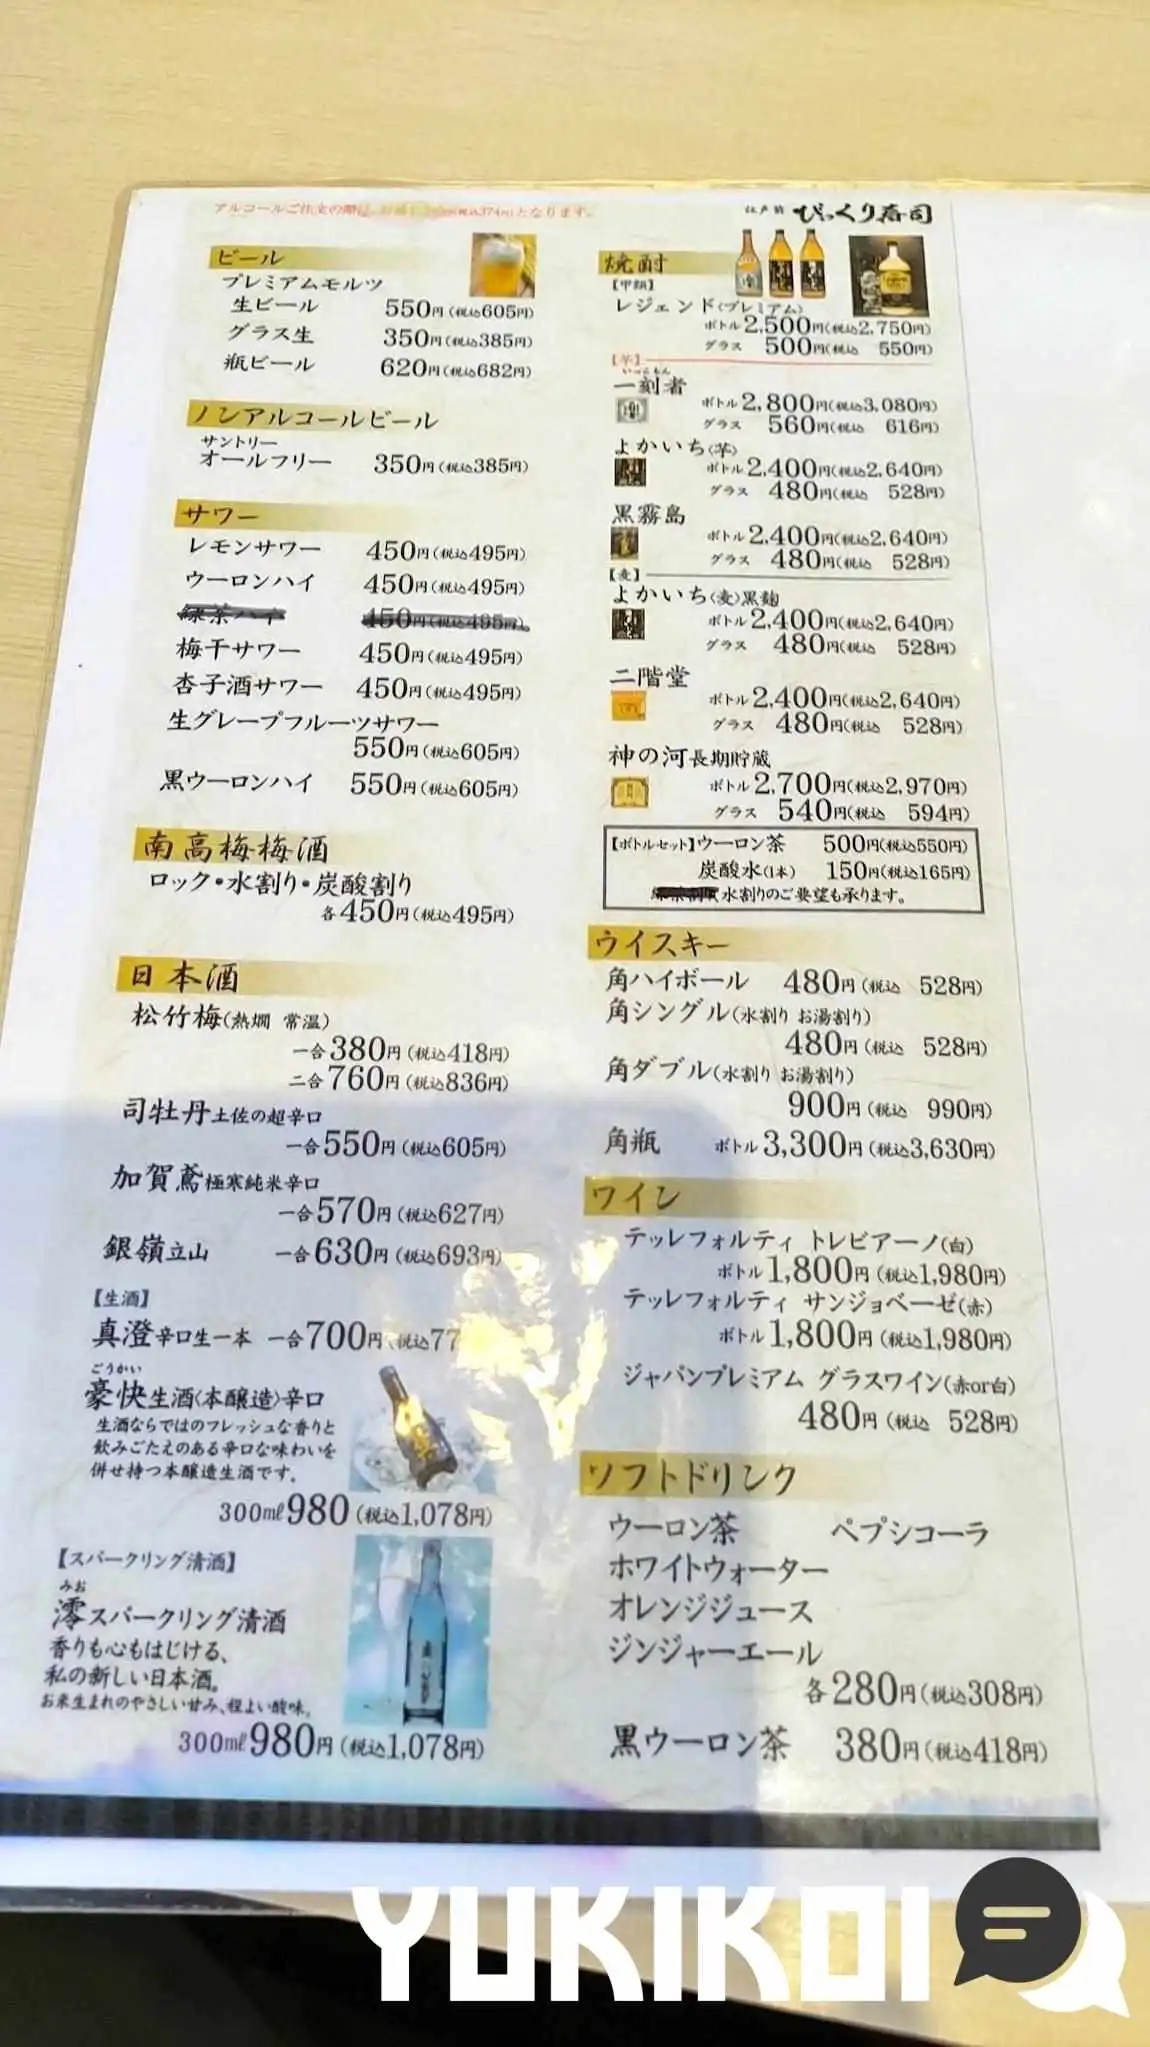 アルコールご注文の際は、お通し
374円)となります。
江戸前 びっくり寿司
ビール
プレミアムモルツ
生ビール 550円(税込605円)
グラス生 350円(税込385円)
瓶ビール 620円(税込682円)
ノンアルコールビール
サントリー
オールフリー 350円(税込385円)
サワー
レモンサワー 450円(税込495円)
ウーロンハイ 450円(税込495円)
緑茶ハイ 450円(税込495円)
梅干サワー 450円(税込495円)
杏子酒サワー 450円(税込495円)
生グレープフルーツサワー
550円(税込605円)
黒ウーロンハイ 550円(税込605円)
南高梅梅酒
ロック・水割り・炭酸割り
各450円(税込495円)
日本酒
松竹梅(熱燗 常温)
一合380円(税込418円)
二合760円(税込836円)
司牡丹土佐の超辛口
一合550円(税込605円)
加賀鳶極寒純米辛口
一合570円(税込627円)
銀嶺立山 一合630円(税込693円)
【生酒】
真澄辛口生一本 一合700円(税込77
ごうかい
豪快生酒〈本醸造〉辛口
生酒ならではのフレッシュな香りと
飲みごたえのある辛口な味わいを
併せ持つ本醸造生酒です。
300㎖980(税込1,078円)
【スパークリング清酒】
みお
澪スパークリング清酒
香りも心もはじける、
私の新しい日本酒。
お米生まれのやさしい甘み、程よい酸味。
300㎖980円(税込1,078円)
焼酎
【甲類】
レジェンド(プレミアム)
ボトル2,500円(税込2,750円)
グラス 500円(税込 550円)
【芋】
いっこもん
一刻者
ボトル2,800円(税込3,080円)
グラス 560円(税込 616円)
よかいち〈芋〉
ボトル2,400円(税込2,640円)
グラス 480円(税込 528円)
黒霧島
ボトル2,400円(税込2,640円)
グラス 480円(税込 528円)
【麦】
よかいち〈麦〉黒麹
ボトル2,400円(税込2,640円)
グラス 480円(税込 528円)
二階堂
ボトル2,400円(税込2,640円)
グラス 480円(税込 528円)
神の河長期貯蔵
ボトル2,700円(税込2,970円)
グラス 540円(税込 594円)
【ボトルセット】ウーロン茶 500円(税込550円)
炭酸水(1本) 150円(税込165円)
水割りのご要望も承ります。
ウイスキー
角ハイボール 480円(税込 528円)
角シングル(水割り お湯割り)
480円(税込 528円)
角ダブル(水割り お湯割り)
900円(税込 990円)
角瓶 ボトル3,300円(税込3,630円)
ワイン
テッレフォルティ トレビアーノ(白)
ボトル1,800円(税込1,980円)
テッレフォルティ サンジョベーゼ(赤)
ボトル1,800円(税込1,980円)
ジャパンプレミアム グラスワイン(赤or白)
480円(税込 528円)
ソフトドリンク
ウーロン茶 ペプシコーラ
ホワイトウォーター
オレンジジュース
ジンジャーエール
各280円(税込308円)
黒ウーロン茶 380円(税込418円)
YUKIKOI